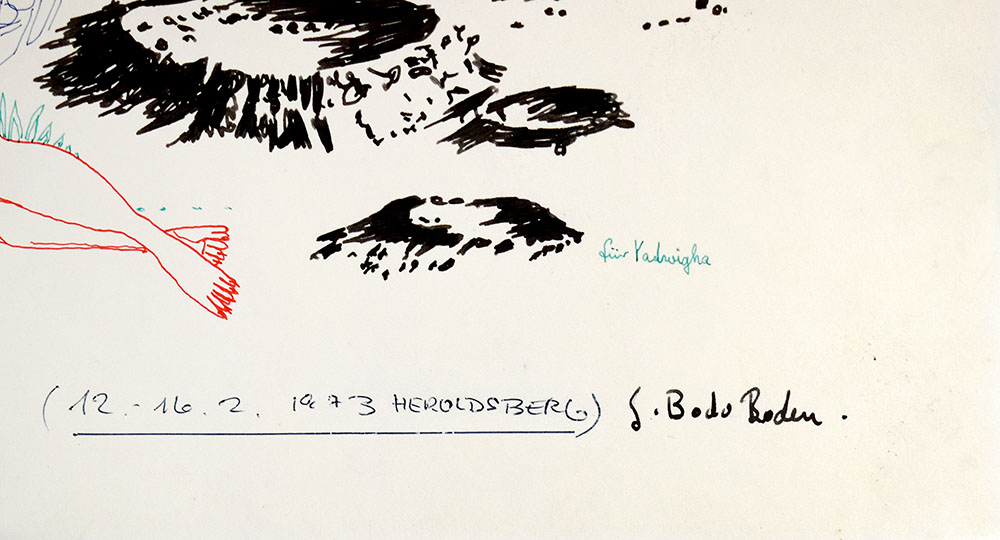 für Yadwigha
(12.-16.2. 1973 HEROLDSBERG) f. Bodo Boden.